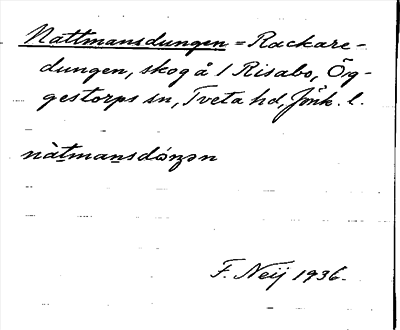 Nattmansdungen = Rackare-
dungen, skog å 1 Risabo, Ög-
gestorps sn, Tveta hd, Jönk. l.
nàtmansdóŋən
F. Neij 1936.